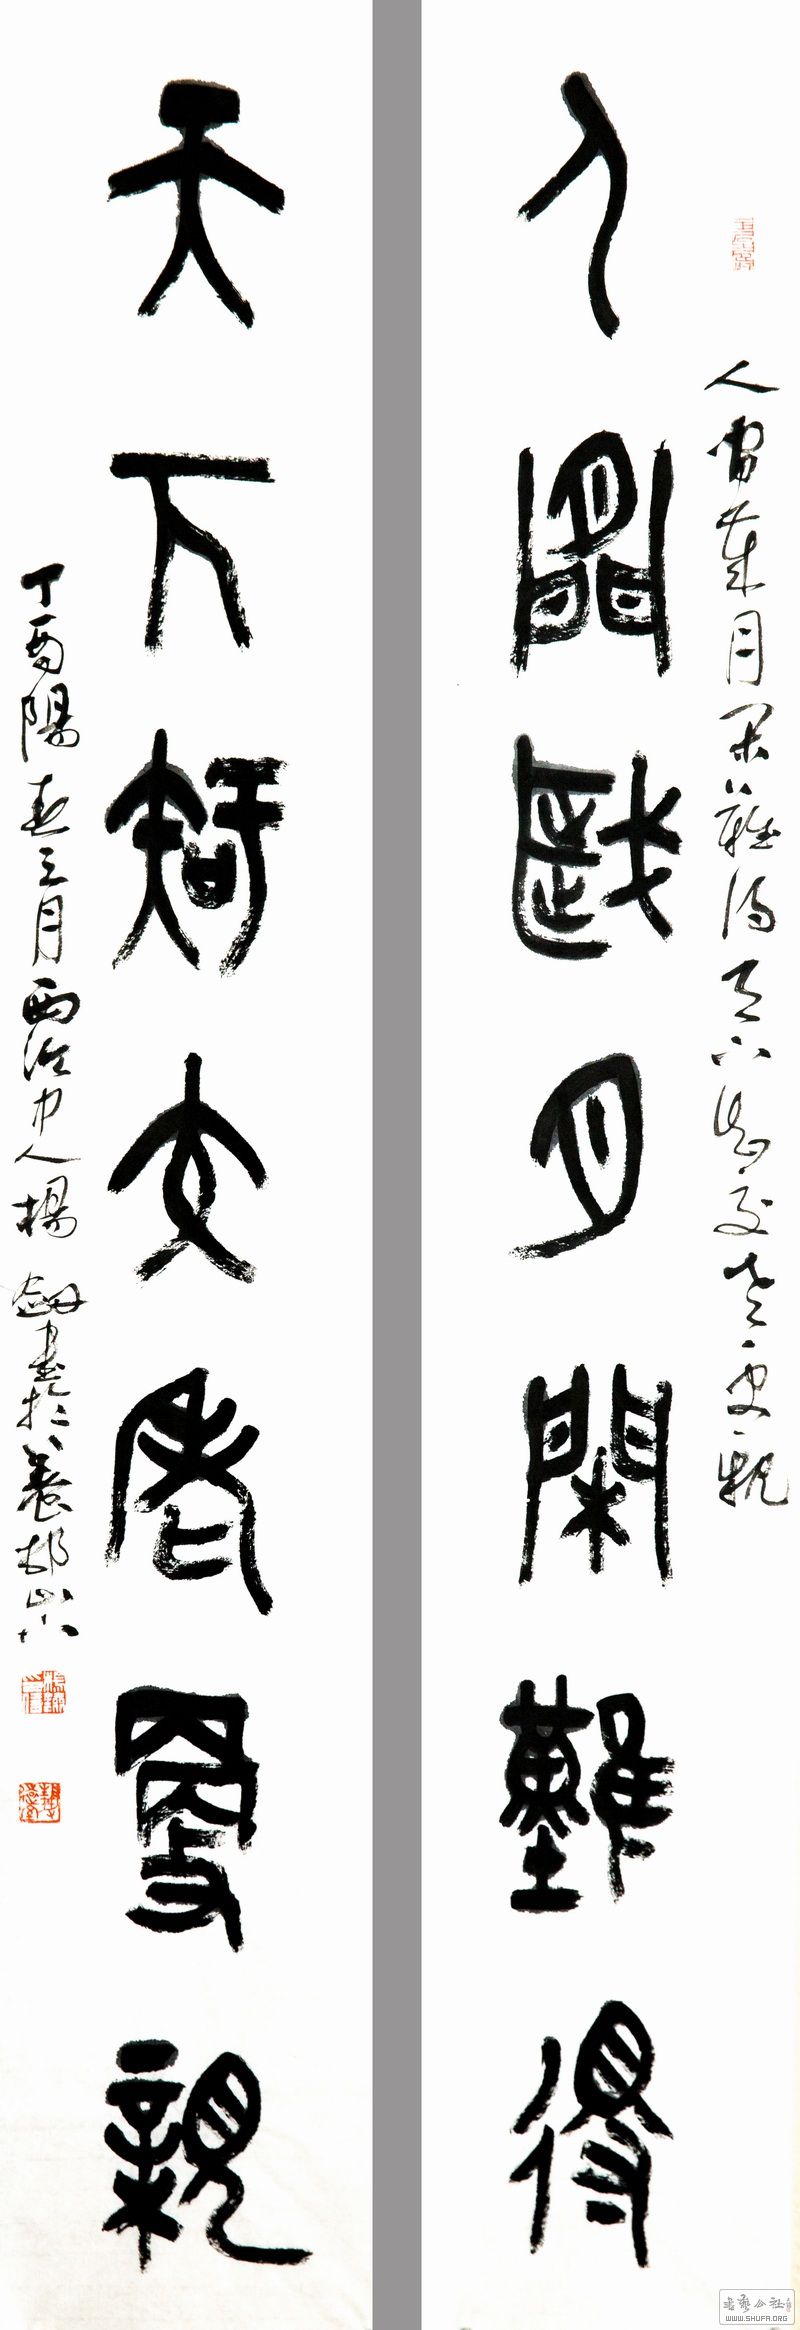 人間歲月閑難得
人間歲月閑難得天下知交老更親
天下知交老更親
丁酉陽春三月西泠中人楊
書於
書法公社
WWW.SHUFA.ORG